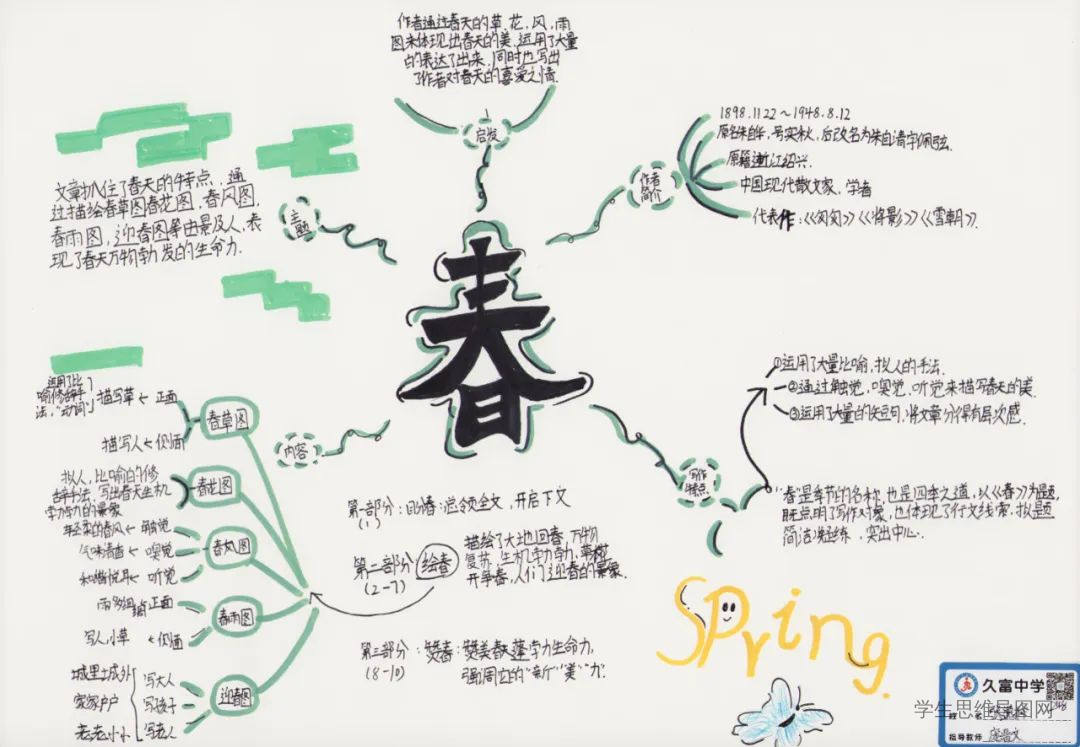 作者通过春天的草,花,风,雨
图来体现出春天的美,运用了大量
的表达了出来,同时也写出
了作者对春天的喜爱之情.
启发
1898.11.22～1948.8.12
原名朱自华,号实秋,后改名为朱自清字佩弦.
原籍浙江绍兴.
中国现代散文家,学者
代表作:《匆匆》《背影》《雪朝》.
作者
简介
文章抓住了春天的特点,通
过描绘春草图春花图,春风图,
春雨图,迎春图等由景及人,表
现了春天万物勃发的生命力.
主题
春
①运用了大量比喻,拟人的手法.
②通过触觉,嗅觉,听觉来描写春天的美.
③运用了大量的短句,将文章分得有层次感.
写作
特点
春是季节的名称,也是四季之道,以《春》为题,
既点明了写作对象,也体现了行文线索,拟题
简洁凝练,突出中心.
内容
运用了比
喻修辞手
法,"动词"
描写草 ← 正面
描写人 ← 侧面
春草图
拟人,比喻的修
辞手法,写出春天生机
勃勃的景象
春花图
轻柔的春风 ← 触觉
气味清香 ← 嗅觉
和谐悦耳 ← 听觉
春风图
雨多细 正面
写人,小草 ← 侧面
春雨图
城里城外
家家户户
老老小小
写大人
写孩子
写老人
迎春图
第一部分:盼春:总领全文,开启下文
(1)
第二部分 绘春
(2-7)
描绘了大地回春,万物
复苏,生机勃勃,草树
开争春,人们迎春的景象.
第三部分:赞春:赞美春天蓬勃生命力,
(8-10)
强调它的"新""美""力.
Spring.
久富中学
学生思维导图网
指导教师